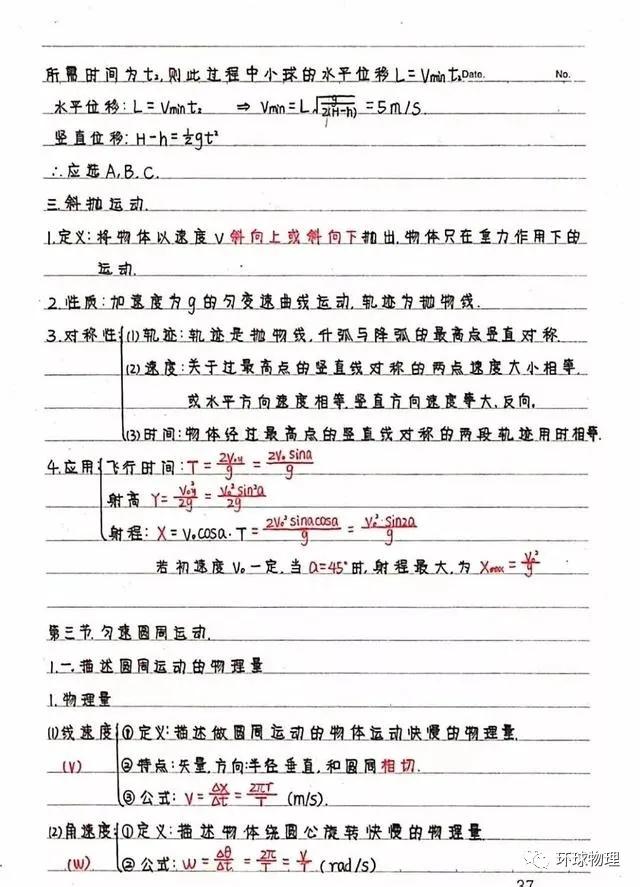 所需时间为t₂,则此过程中小球的水平位移L=Vmin t₂ Date. No.
水平位移:L=Vmin t₂ ⇒ Vmin=L√(g/2(H-h))=5m/s.
竖直位移:H-h=½gt²
∴应选A,B,C.
三.斜抛运动.
1.定义:将物体以速度v斜向上或斜向下抛出,物体只在重力作用下的
运动.
2.性质:加速度为g的匀变速曲线运动,轨迹为抛物线.
3.对称性{(1)轨迹:轨迹是抛物线,升弧与降弧的最高点竖直对称
(2)速度:关于过最高点的竖直线对称的两点速度大小相等,
或水平方向速度相等,竖直方向速度等大,反向。
(3)时间:物体经过最高点的竖直线对称的两段轨迹用时相等.
4.应用{飞行时间:T=2V₀y/g=2V₀sina/g
射高 Y=V₀y²/2g=V₀²sin²a/2g
射程:X=V₀cosa·T=2V₀²sinacosa/g=V₀²·sin2a/g
若初速度V₀一定,当a=45°时,射程最大,为Xmax=V₀²/g
第三节.匀速圆周运动.
1.一.描述圆周运动的物理量
1.物理量
(1)线速度{①定义:描述做圆周运动的物体运动快慢的物理量.
(V) ②特点:矢量,方向:半径垂直,和圆周相切.
③公式:V=Δx/Δt=2πr/T (m/s).
(2)角速度{①定义:描述物体绕圆心旋转快慢的物理量
(W) ②公式:W=Δθ/Δt=2π/T=V/r (rad/s)
环球物理
37